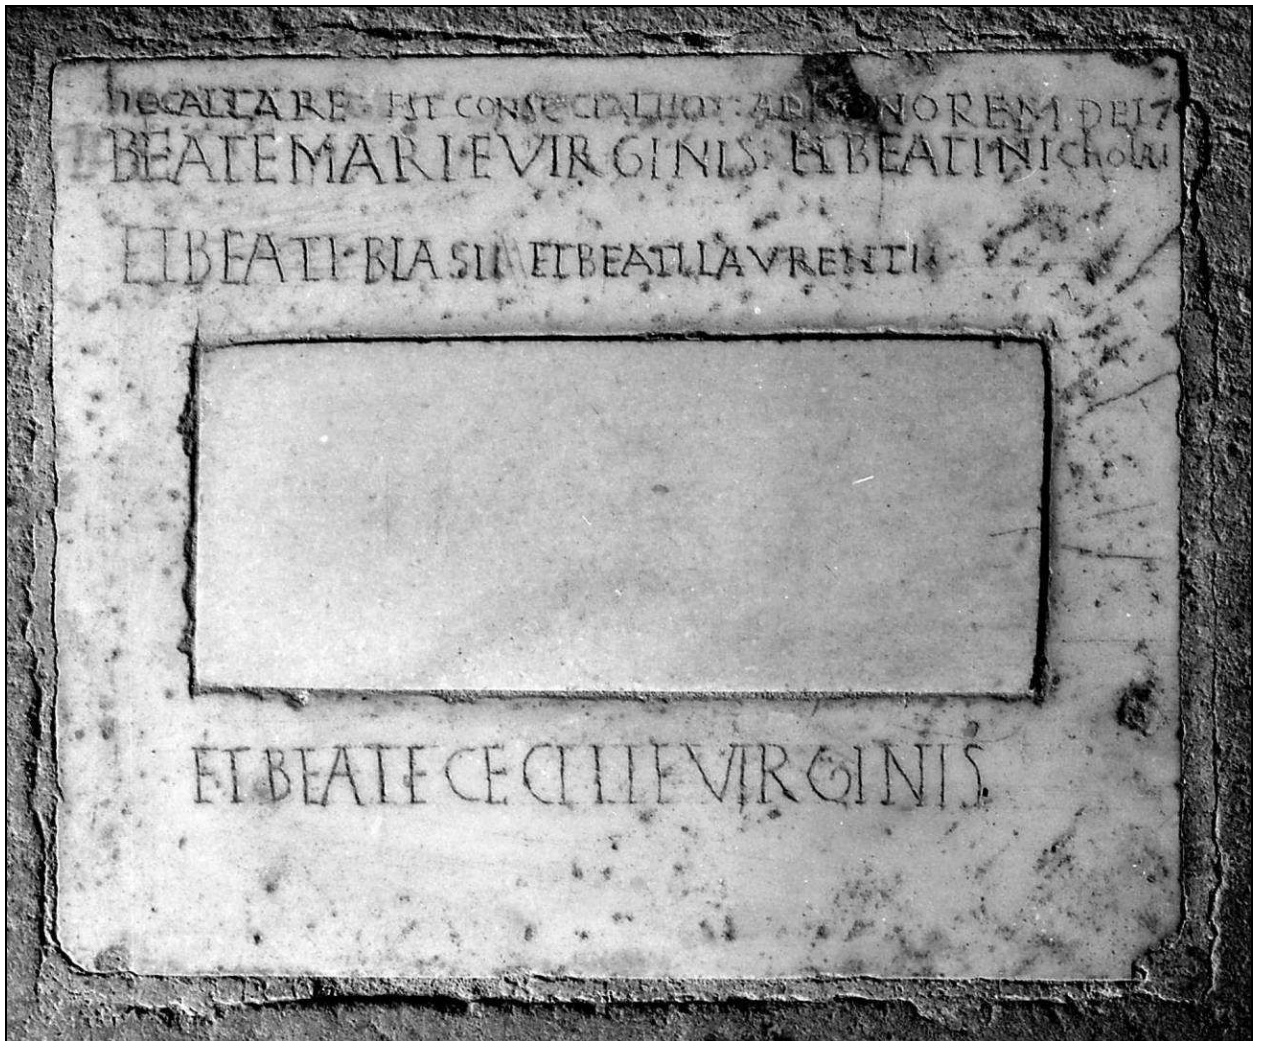 hOC ALTARE EST CONSECTATUM AD HONOREM DEI 7
BEATE MARIE VIRGINIS ET BEATI NIChOLAI
ET BEATI BLASII ET BEATI LAVRENTII
ET BEATE CECILIE VIRGINIS